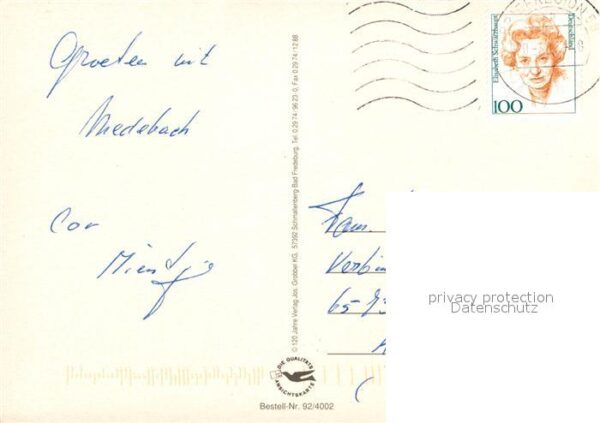 Groeten uit
Medebach
Cor
Mientje
© 120 Jahre Verlag Jos. Grobbel KG, 57392 Schmallenberg Bad Fredeburg, Tel. 0 29 74 / 96 23-0, Fax 0 29 74 / 12 88
DIE QUALITÄTS
ANSICHTSKARTE
Bestell-Nr. 92/4002
Elisabeth Schwarzhaupt
Deutschland
100
Fam.
privacy protection
Datenschutz